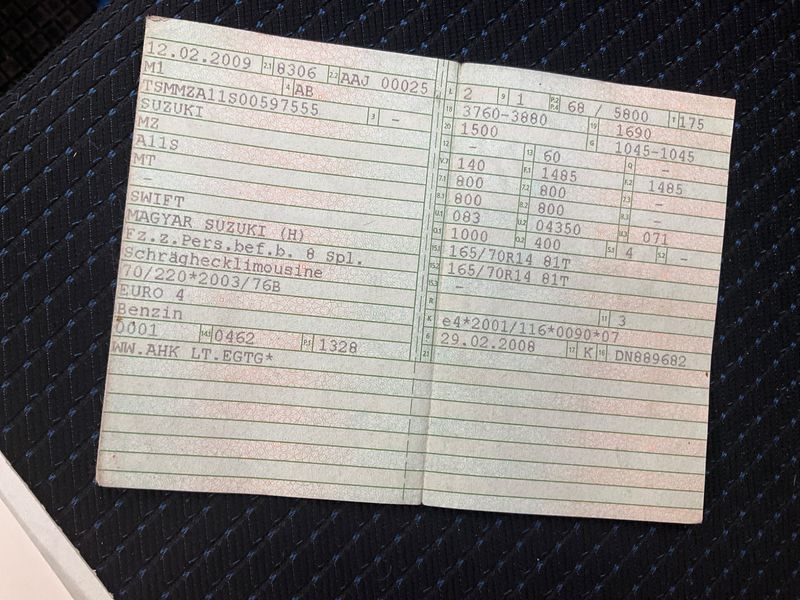 12.02.2009 2.1 8306 2.2 AAJ 00025
M1 4 AB
TSMMZA11S00597555 3 -
SUZUKI
MZ
A11S
MT
-
SWIFT
MAGYAR SUZUKI (H)
Fz.z.Pers.bef.b. 8 Spl.
Schräghecklimousine
70/220*2003/76B
EURO 4
Benzin
0001 14.1 0462 P.1 1328
WW.AHK LT.EGTG*
L 2 9 1 P.2 P.4 68 / 5800 T 175
18 3760-3880 19 1690
20 1500 G 1045-1045
12 - 13 60 Q -
V.7 140 F.1 1485 F.2 1485
7.1 800 7.2 800 7.3 -
8.1 800 8.2 800 8.3 -
U.1 083 U.2 04350 U.3 071
O.1 1000 O.2 400 S.1 4 S.2 -
15.1 165/70R14 81T
15.2 165/70R14 81T
15.3 -
R 11 3
K e4*2001/116*0090*07
6 29.02.2008 17 K 16 DN889682
21